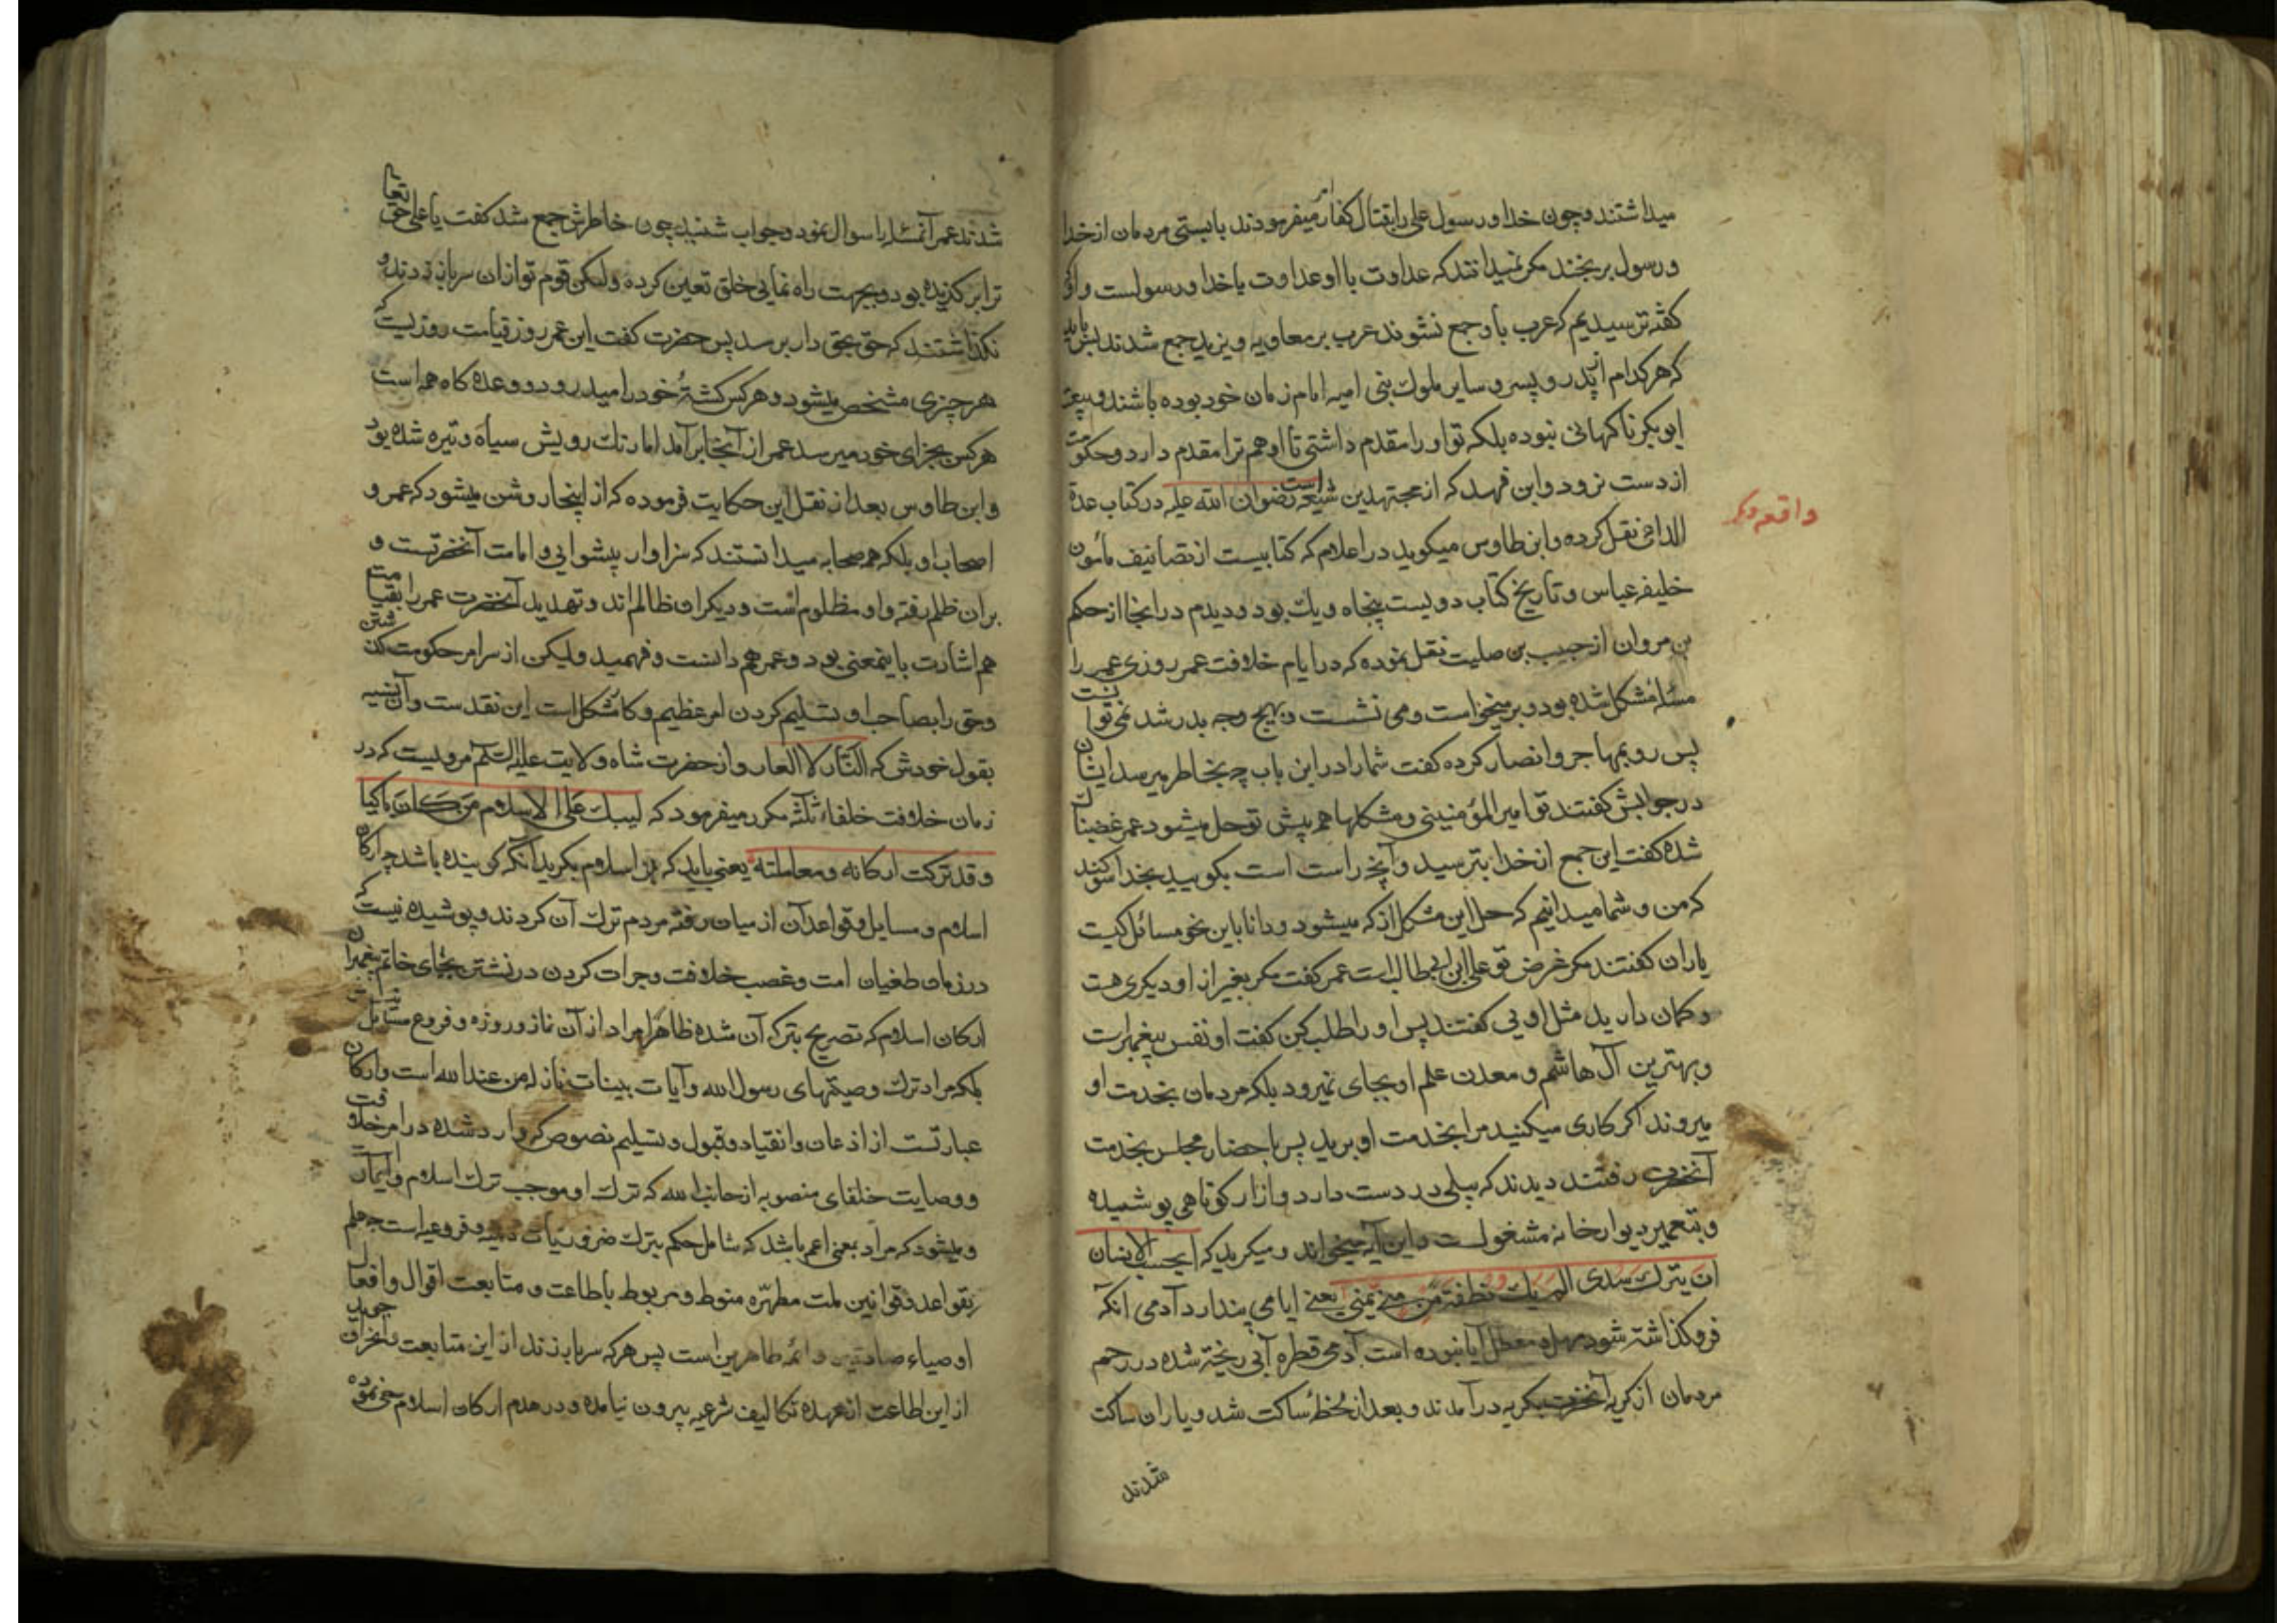 میداشتند و چون خدا و رسول علی را بقتال کفار امر میفرمودند بایستی مردمان از خدا
و رسول برنجند مکر نمیدانند که عداوت با او عداوت با خدا و رسولست و آنکه
کفته ترسیدیم که عرب باو جمع نشوند عرب بر معاویه و یزید جمع شدند پس باید
که هر کدام از پدر و پسر و سایر ملوک بنی امیه امام زمان خود بوده باشند و بیعت
ابوبکر ناکهانی نبوده بلکه تو او را مقدم داشتی تا او هم ترا مقدم دارد و حکومت
از دست نرود و ابن فهد که از مجتهدین شیعه است رضوان الله علیه در کتاب عدة
واقعه دیکر
الداعی نقل کرده و ابن طاوس میکوید در اعلام که کتابیست از تصانیف مأمون
خلیفه عباسی و تاریخ کتاب دویست پنجاه و یک بود و دیدم در انجا از حکم
بن مروان از جبیب بن صلیت نقل نموده که در ایام خلافت عمر روزی عمر را
مسئله مشکل شده بود و بر میخواست و می نشست و بهیچ وجه بدر شد نمی توانست
پس رو بمهاجر و انصار کرده کفت شما را در این باب چه بخاطر میرسد ایشان
در جوابش کفتند تو امیر المؤمنینی و مشکلها هم پیش تو حل میشود عمر غضبناک
شده کفت این جمع از خدا بترسید و آنچه راست است بکویید بخدا سوکند
که من و شما میدانیم که حل این مشکل از که میشود و دانا باین نحو مسائل کیست
یاران کفتند مکر غرض تو علی ابن ابی طالب است عمر کفت مکر بغیر از او دیکری هست
و کمان دارید مثل اویی کفتند پس او را طلب کن کفت او نفس پیغمبرست
و بهترین آل هاشم و معدن علم او بجای نمیرود بلکه مردمان بخدمت او
میروند اکر کاری میکنید مرا بخدمت او برید پس با حضار مجلس بخدمت
آنحضرت رفتند دیدند که بیلی در دست دارد و ازار کوتاهی پوشیده
و بتعمیر دیوار خانه مشغولست و این آیه میخواند و میکرید که ایحسب الانسان
ان یترک سدی الم یک نطفة من منی یمنی یعنی ایا می پندارد آدمی آنکه
فروکذاشته شود مهمل و معطل آیا نبوده است آدمی قطره آبی ریخته شده در رحم
مردمان از کریه آنحضرت بکریه در آمدند و بعد از لحظهٔ ساکت شد و یاران ساکت
شدند
شدند عمر آن مسئله را سوال نمود و جواب شنید چون خاطرش جمع شد کفت یا علی حق تعالی
ترا برکزیده بود و بجهت راه نمایی خلق تعین کرده ولیکن قوم تو از ان سر باز زدند و
نکذاشتند که حق بحق دار برسد پس حضرت کفت ای عمر روز قیامت روزیست که
هر چیزی مشخص میشود و هر کس کشتهٔ خود را میدرود و وعده کاه همه است
هر کس بجزای خود میرسد عمر از آنجا برآمد اما رنک رویش سیاه و تیره شده بود
و ابن طاوس بعد از نقل این حکایت فرموده که از اینجا روشن میشود که عمر و
اصحاب او بلکه همه صحابه میدانستند که سزاوار پیشوایی و امامت آنحضرتست و
بر ان ظلم رفته و او مظلوم است و دیکران ظالم اند و تهدید آنحضرت عمر را بقیامت
هم اشارت باینمعنی بود و عمر هم دانست و فهمید ولیکن از سر امر حکومت کذشتن
و حق را بصاحب او تسلیم کردن امر عظیم و کار مشکل است این نقدست و آن نسیه
بقول خودش که النار لا العار و از حضرت شاه ولایت علیه السلم مرویست که در
زمان خلافت خلفاء ثلثه مکرر میفرمود که لیبک علی الاسلام من کان باکیا
و قد ترکت ارکانه و معاملته یعنی باید که بر اسلام بکرید آنکه کرینده باشد چه ارکان
اسلام و مسایل و قواعد آن از میان رفته مردم ترک آن کردند و پوشیده نیست که
در زمان طغیان امت و غصب خلافت و جرات کردن در نشستن بجای خاتم پیغمبران
ارکان اسلام که تصریح بترک آن شده ظاهرا مراد از آن نماز و روزه و فروع مسایل نیست
بلکه مراد ترک وصیتهای رسول الله و آیات بینات نازله من عند الله است و ارکان
عبارتست از اذعان و انقیاد و قبول و تسلیم نصوص که وارد شده در امر خلافت
و وصایت خلفای منصوبه از جانب الله که ترک او موجب ترک اسلام و ایمان است
و میشود که مراد بمعنی اعم باشد که شامل حکم بترک ضروریات دینیه و فروعیه است چه علم
بقواعد و قوانین ملت مطهره منوط و مربوط باطاعت و متابعت اقوال و افعال
اوصیاء صادقین و ائمه طاهرین است پس هر که سر باز زند از این متابعت و انحراف جوید
از این طاعت از عهده تکالیف شرعیه بیرون نیامده و در هدم ارکان اسلام سعی نموده